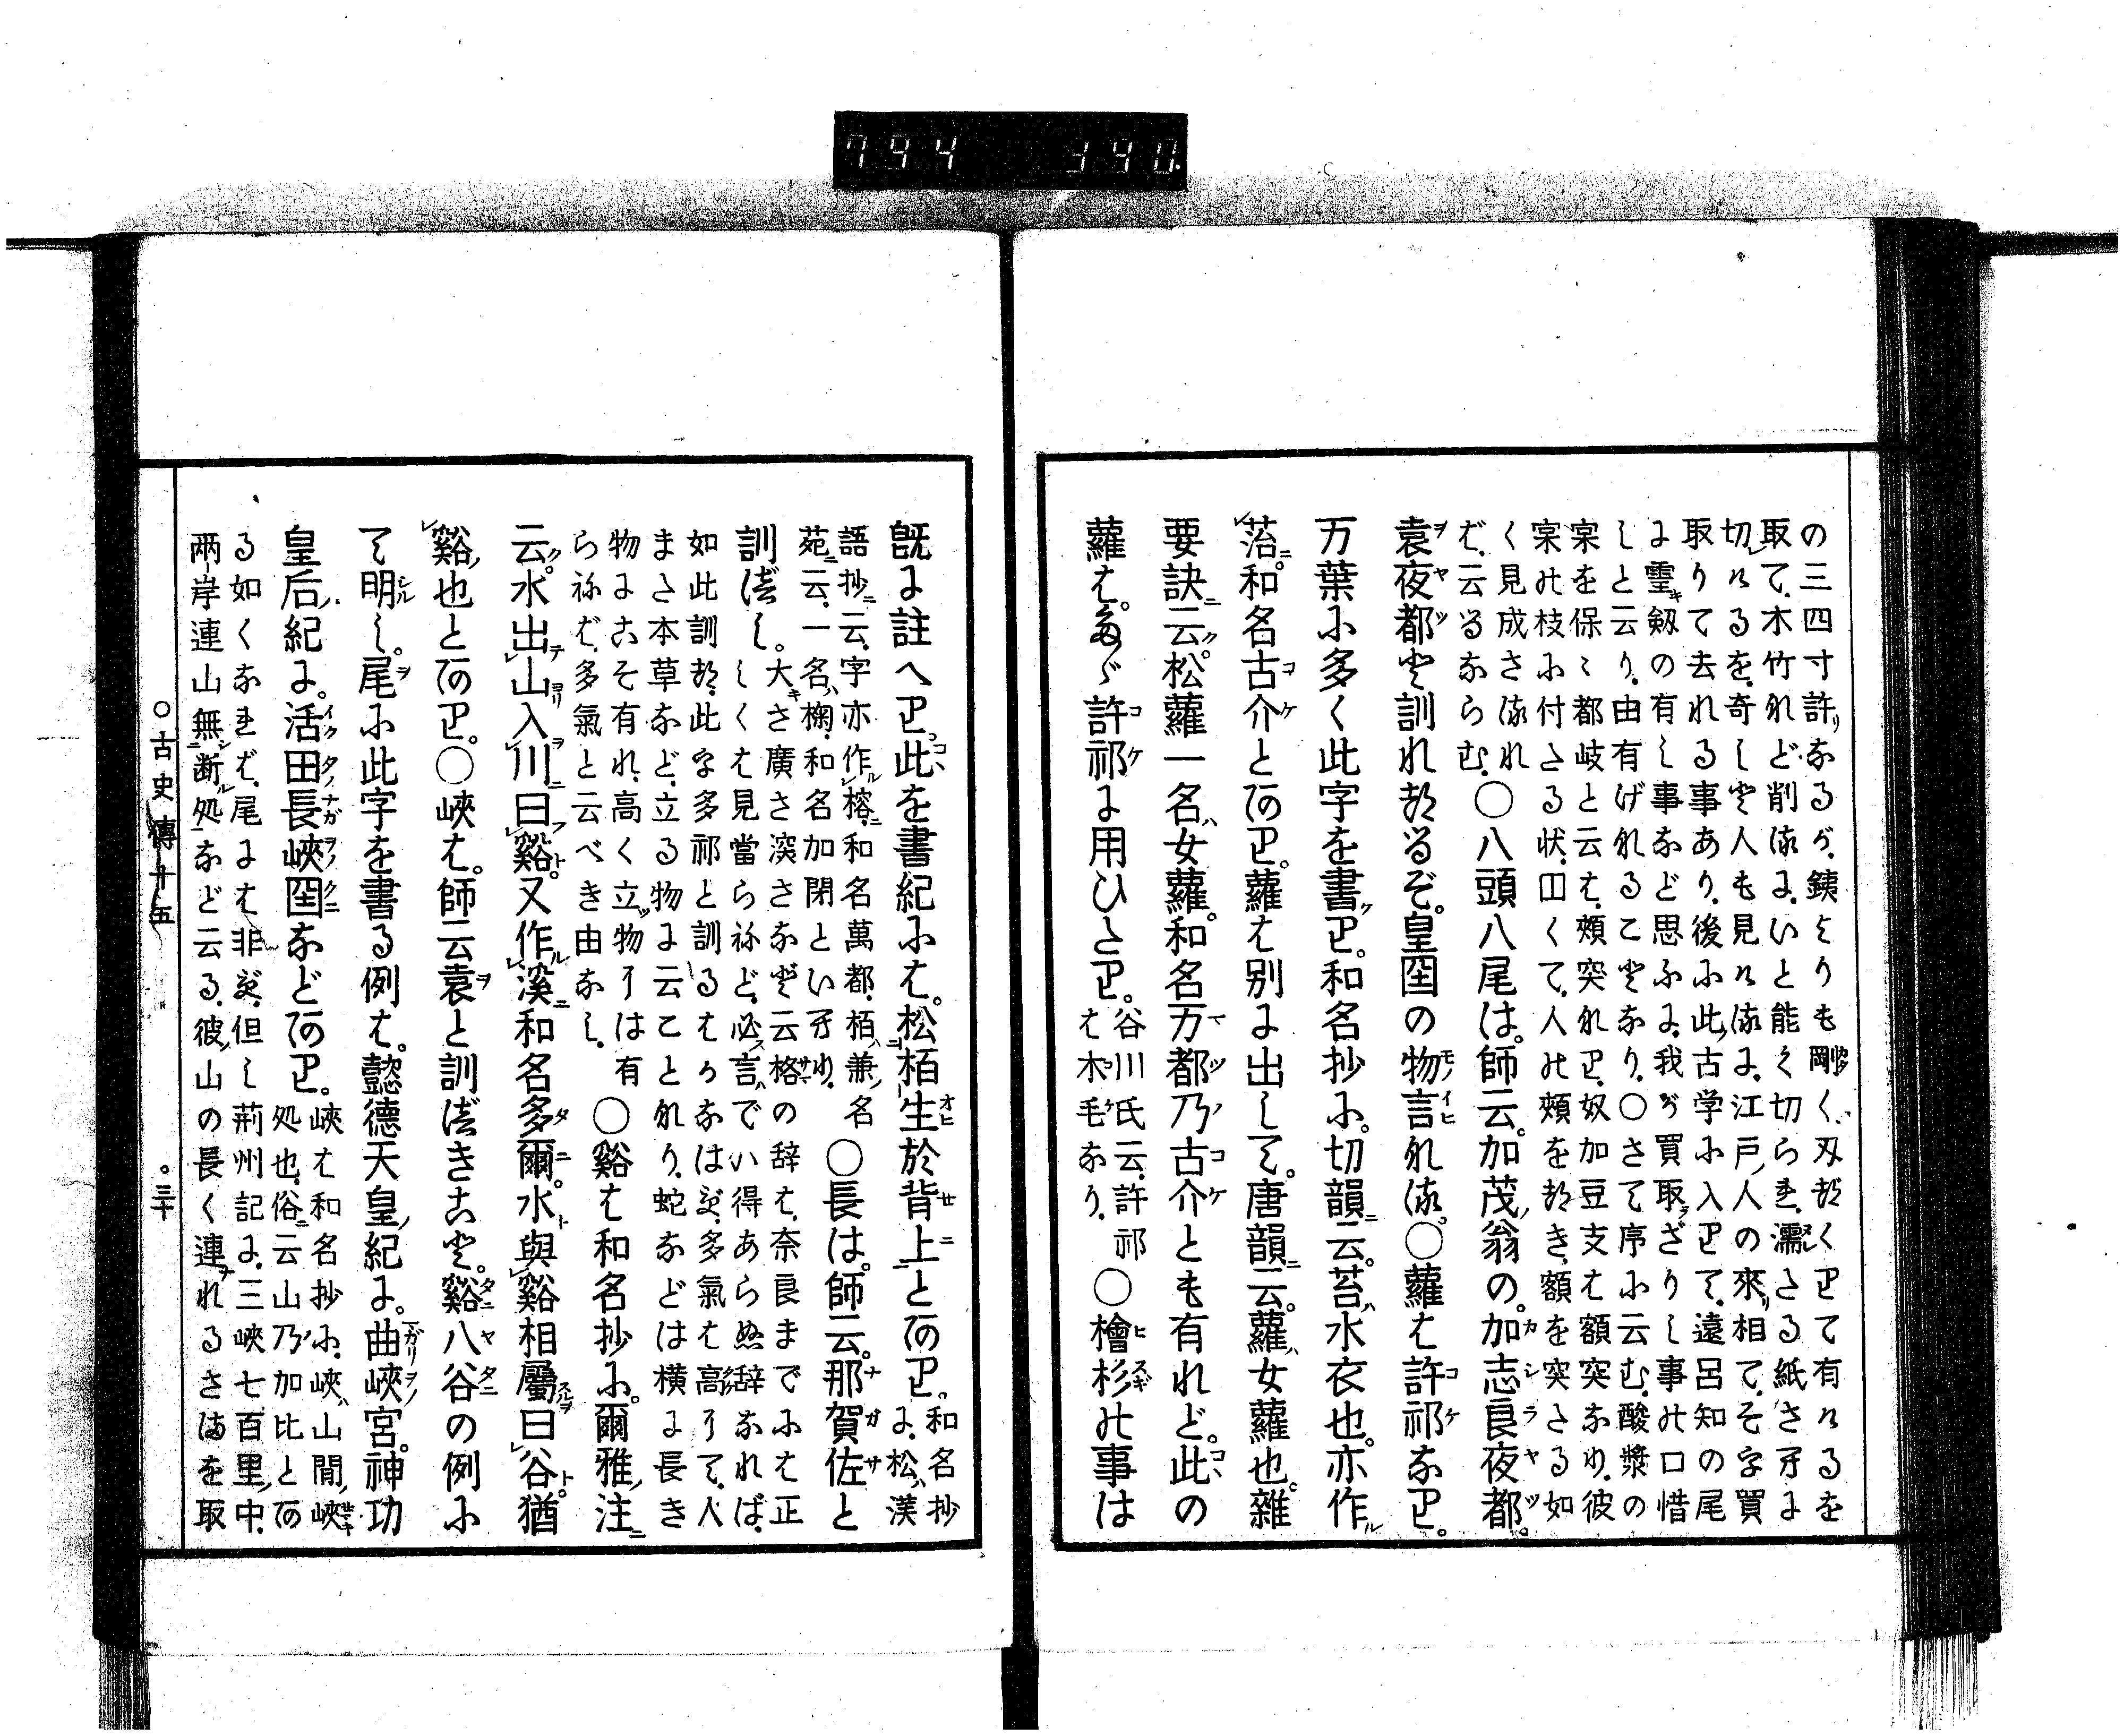 の三四寸許なるが、銕よりも剛く、刄なくして有けるを
取て、木竹れど削るに、いと能く切られ、濡たる紙さへに
切れけるを、奇しと人も見けるに、江戸人の來相て、そを買
取りて去れる事あり、後に此古学に入りて、遠呂知の尾
に霊剱の有し事など思ふに、我が買取ざりし事の口惜
しと云り、由有げなることなり、○さて序に云む、酸漿の
宲を保々都岐と云は、頰突なり、奴加豆支は額突なり、彼
宲の枝に付たる状、円くて、人の頰をなき、額を突たる如
く見成さるれ
ば、云るならむ、○八頭八尾は。師云。加茂翁の。加志良夜都。
袁夜都と訓れたるぞ。皇国の物言なる。○蘿は許祁なり。
万葉に多く此字を書り。和名抄に。切韻云。苔水衣也。亦作
菭。和名古介とあり。蘿は別に出して。唐韻云。蘿女蘿也。雜
要訣云。松蘿一名女蘿。和名万都乃古介とも有れど。此の
蘿は。たゞ許祁に用ひたり。谷川氏云、許祁は木毛なり、○檜杉の事は
既に註へり。此を書紀には。松栢生於背上とあり。和名抄に、松、漢
語抄云、字亦作榕、和名萬都、栢、兼名
苑云、一名椈、和名加閉といへり、○長は。師云。那賀佐と
訓べし。大さ廣さ深さなど云格の辞は、奈良まで には正
しくは見當らねど、必言でい得あらぬ辞なれば、
如此訓な、此を多祁と訓るはかなはず、多氣は高りて、人
また本草など、立る物に云ことなり、蛇などは横に長き
物にこそ有れ、高く立物には有
らねば、多氣と云べき由なし、○谿は和名抄に。爾雅注
云。水出山入川曰谿。又作渓。和名多爾。水與谿相屬曰谷。猶
谿也とあり。○峽は。師云袁と訓べきこと。谿八谷の例に
て明し。尾に此字を書る例は。懿德天皇紀に。曲峽宮。神功
皇后紀に。活田長峽国などあり。峽は和名抄に、峽山間峽
処也、俗云山乃加比とあ
る如くなれば、尾には非ず、但し荊州記に、三峽七百里中、
兩岸連山無断処など云る、彼山の長く連れるさまを取
○古史傳十五
○三十
794 390